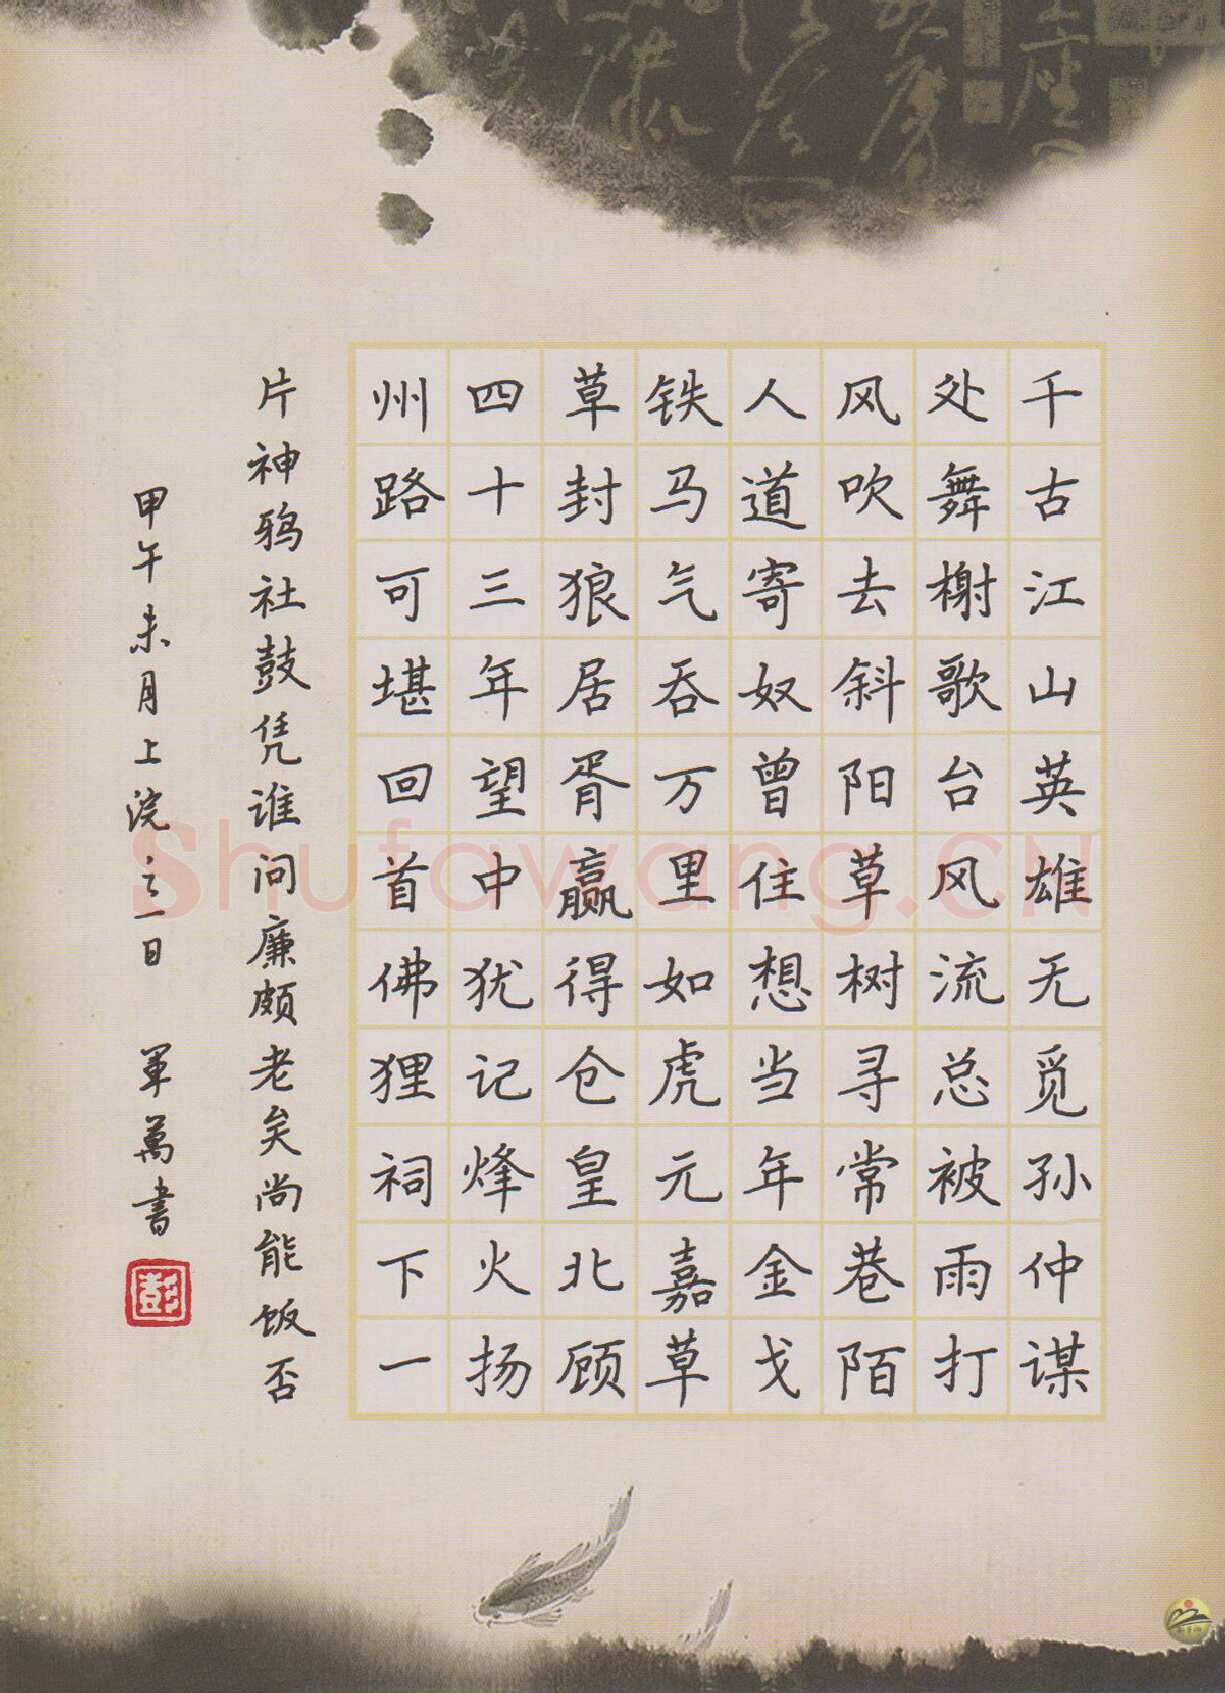 千古江山英雄无觅孙仲谋
处舞榭歌台风流总被雨打
风吹去斜阳草树寻常巷陌
人道寄奴曾住想当年金戈
铁马气吞万里如虎元嘉草
草封狼居胥赢得仓皇北顾
四十三年望中犹记烽火扬
州路可堪回首佛狸祠下一
片神鸦社鼓凭谁问廉颇老矣尚能饭否
甲午未月上浣之一日 軍萬書
彭
Shufawang.CN